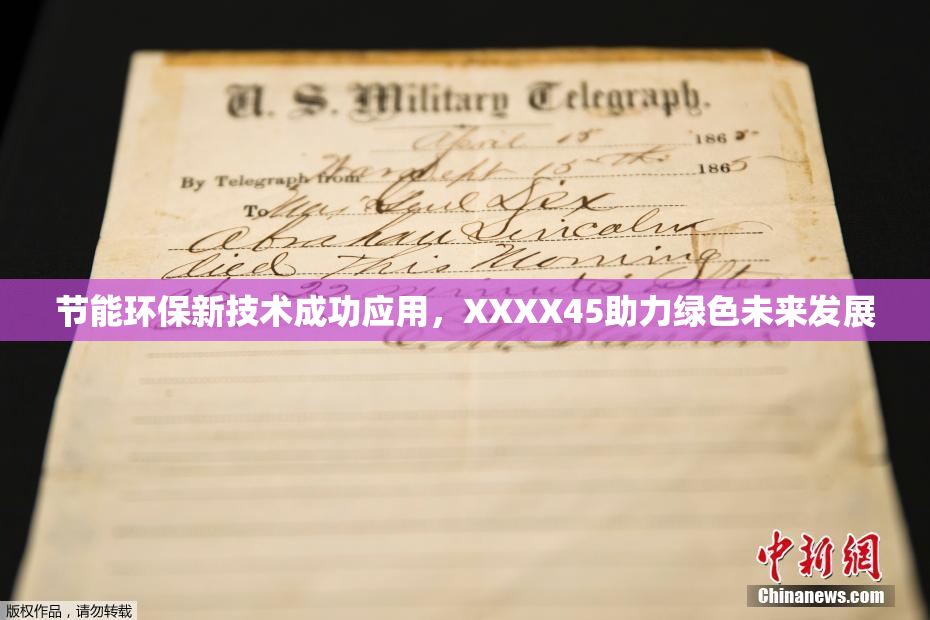 U. S. Military Telegraph.
April 15 1865
By Telegraph from War Dept 15th 1865
To Maj Genl Dix
Abraham Lincoln
died This Morning
at 22 minutes after
节能环保新技术成功应用，XXXX45助力绿色未来发展
E. M. Stanton
中新网
Chinanews.com
版权作品，请勿转载